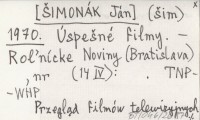 [ŠIMONÁK Ján] (šim) x
1970. Úspešné Filmy. –
Roľnícke Noviny (Bratislava)
, nr (14 IV): . TNP-
-WHP
Przegląd filmów telewizyjnych